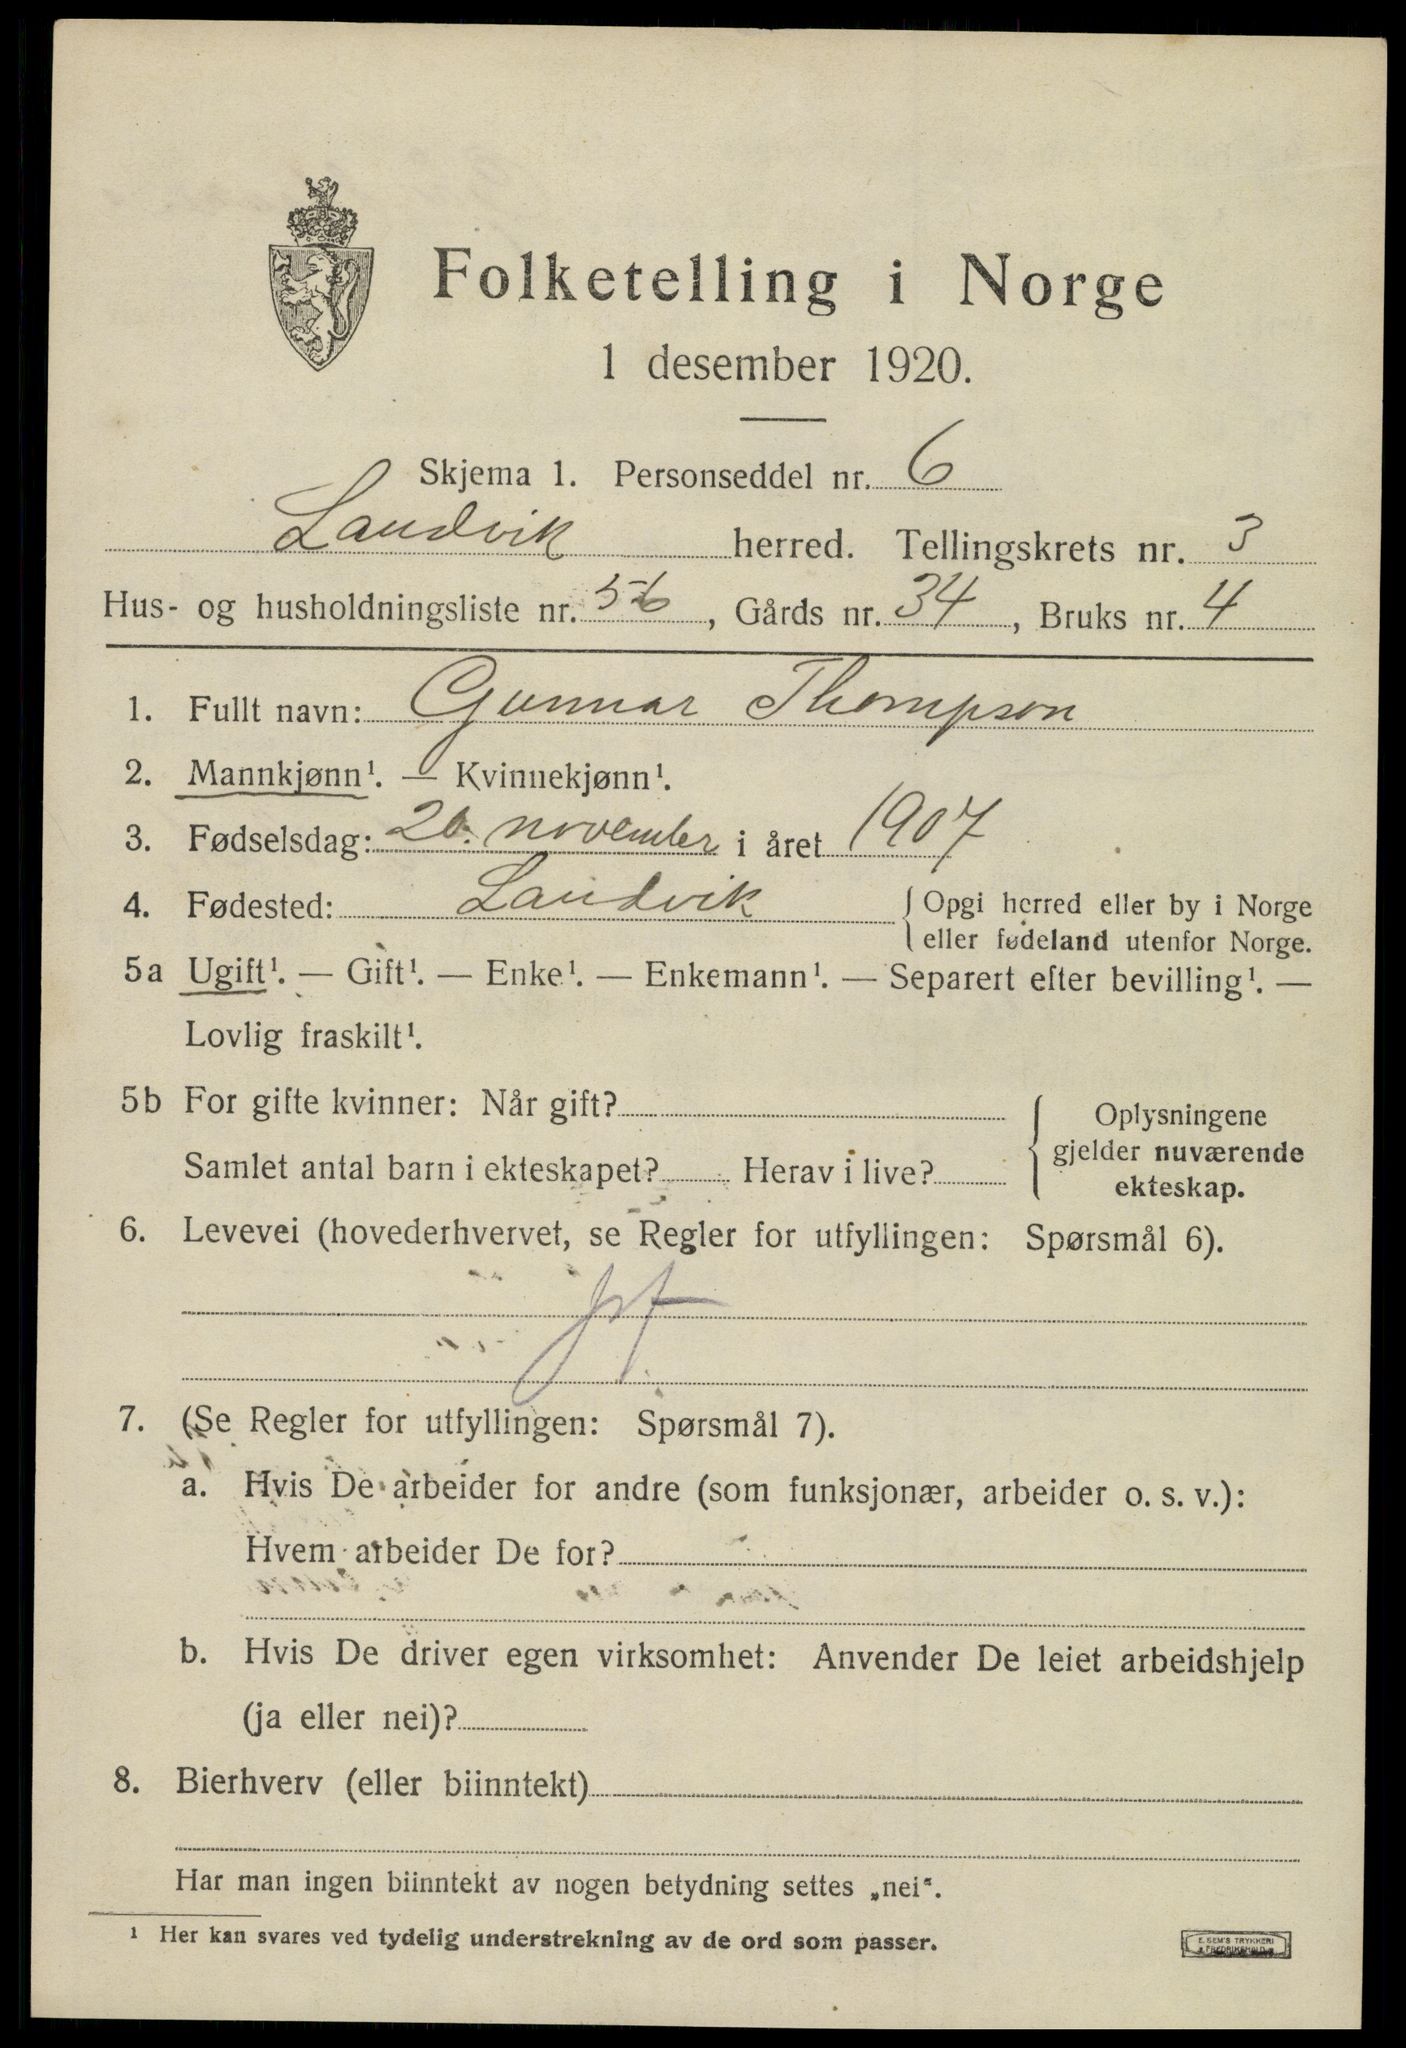 Folketelling i Norge
1 desember 1920.
Skjema 1. Personseddel nr. 6
Landvik herred. Tellingskrets nr. 3
Hus- og husholdningsliste nr. 56, Gårds nr. 34, Bruks nr. 4
1. Fullt navn: Gunnar Thompson
2. Mannkjønn¹. — Kvinnekjønn¹.
3. Fødselsdag: november i året 1907
4. Fødested: Landvik { Opgi herred eller by i Norge
eller fødeland utenfor Norge.
5a Ugift¹. — Gift¹. — Enke¹. — Enkemann¹. — Separert efter bevilling¹. —
Lovlig fraskilt¹.
5b For gifte kvinner: Når gift? { Oplysningene
gjelder nuværende
Samlet antal barn i ekteskapet? Herav i live? ekteskap.
6. Levevei (hovederhvervet, se Regler for utfyllingen: Spørsmål 6).
7. (Se Regler for utfyllingen: Spørsmål 7).
a. Hvis De arbeider for andre (som funksjonær, arbeider o. s. v.):
Hvem arbeider De for?
b. Hvis De driver egen virksomhet: Anvender De leiet arbeidshjelp
(ja eller nei)?
8. Bierhverv (eller biinntekt)
Har man ingen biinntekt av nogen betydning settes „nei“.
¹ Her kan svares ved tydelig understrekning av de ord som passer.
E. SEM'S TRYKKERI
FREDRIKSHALD